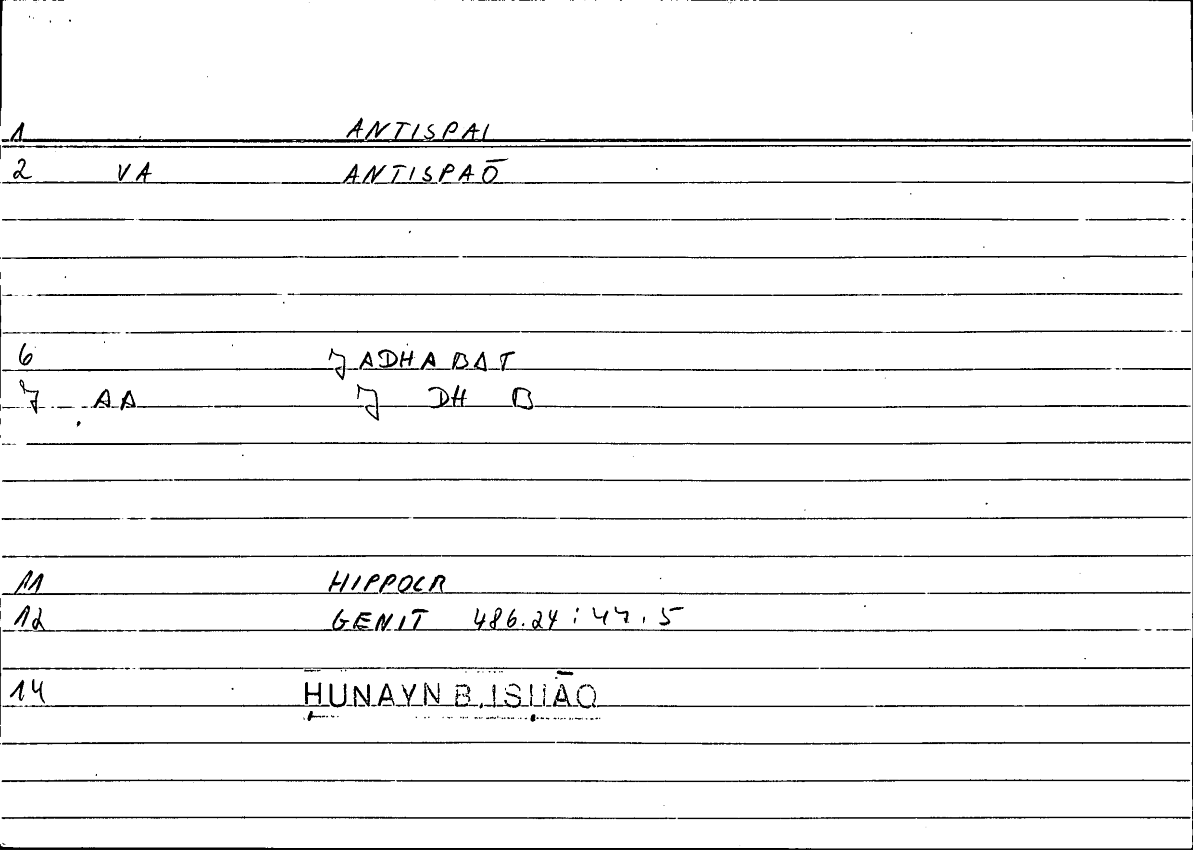 1 ANTISPAI
2 VA ANTISPAŌ
6 JADHABAT
7 AA J DH B
11 HIPPOCR
12 GENIT 486.24 : 47.5
14 ḤUNAYN B. ISḤĀQ